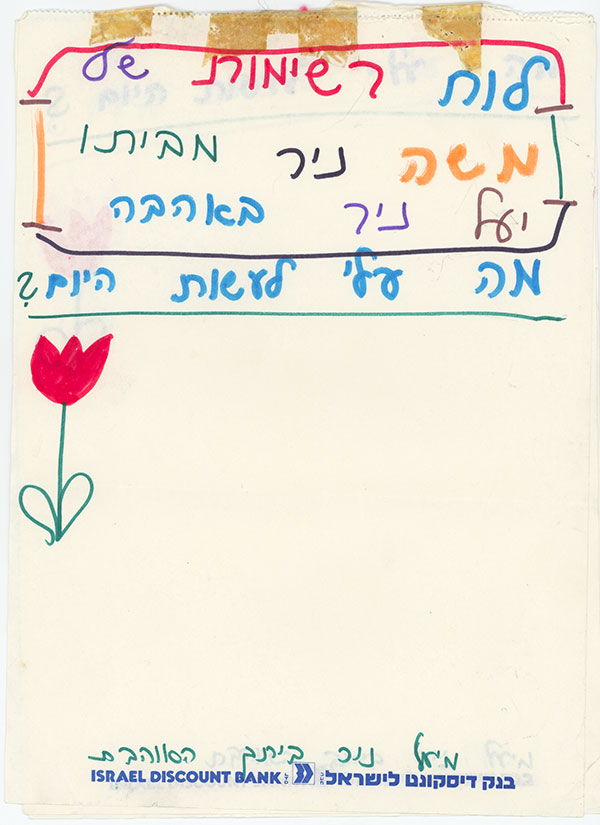 לוח רשימות של
משה ניר מביתו
יעל ניר באהבה
מה עלי לעשות היום?
מיעל ניר ביתך האוהבת
בנק דיסקונט לישראל ISRAEL DISCOUNT BANK